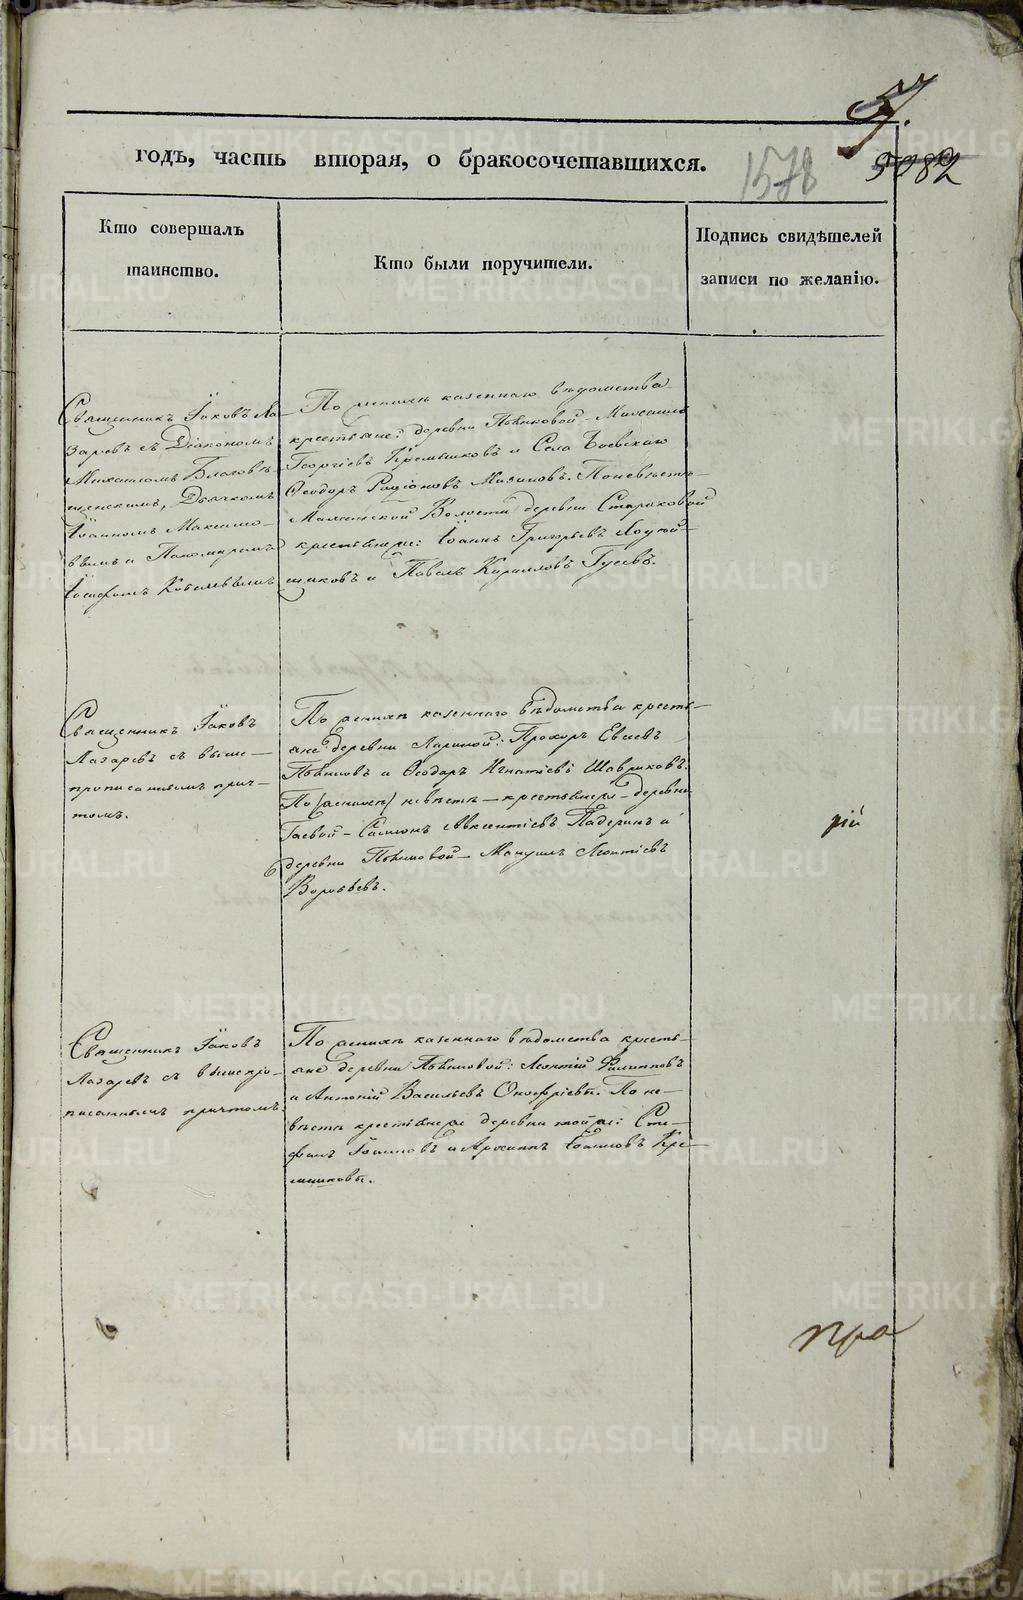 57.
годъ, часть вторая, о бракосочетавшихся.
1578
5082
Кто совершалъ
таинство.
Кто были поручители.
Подпись свидѣтелей
записи по желанію.
Священникъ Іаковъ Ла-
заревъ съ Діакономъ
Михаиломъ Благовѣ-
щенскимъ, Дьячкомъ
Іоанномъ Максимо-
вымъ и Пономаремъ
Іосифомъ
По женихѣ казеннаго вѣдомства
крестьяне: деревни Пьянковой Михаилъ
Георгіевъ и Села Боевскаго
Ѳеодоръ Родіоновъ Мазиновъ. По невѣстѣ
Волости деревни
крестьяне: Іоаннъ Григорьевъ
щиковъ и Павелъ Кирилловъ Гусевъ.
Священникъ Іаковъ
Лазаревъ съ выше-
прописаннымъ прич-
томъ.
По женихѣ казеннаго вѣдомства кресть-
яне деревни Лариной: Прохоръ Евсеевъ
и Ѳеодоръ Игнатіевъ Шавриковъ.
По (женихѣ) невѣстѣ – крестьяне – деревни
Гаевой – Авксентіевъ Падеринъ и
деревни – Мануилъ Леонтіевъ
Воробьевъ.
рій
Священникъ Іаковъ
Лазаревъ съ вышепро-
писаннымъ причтомъ.
По женихѣ казеннаго вѣдомства кресть-
яне деревни: Леонтій Филипповъ
и Антоній Васильевъ Онофріевы. По не-
вѣстѣ крестьяне деревни той же: Сте-
фанъ Іоанновъ и Архиппъ Іоанновъ Кре-
мшиковы.
пра
METRIKI.GASO-URAL.RU